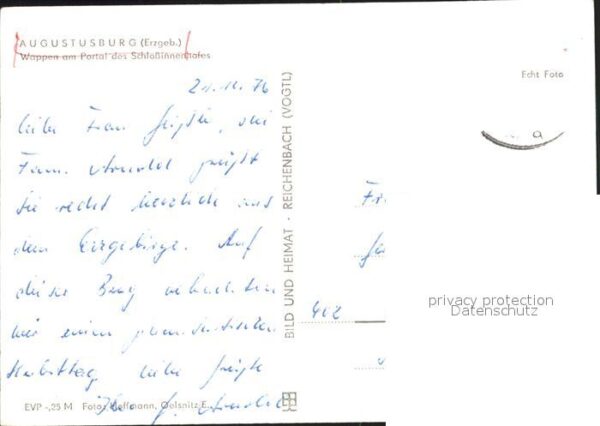 AUGUSTUSBURG (Erzgeb.)
Wappen am Portal des Schloßinnenhofes
Echt Foto
21.11.76
liebe Frau
Fam. Arnold grüßt
Sie recht herzlich aus
dem Erzgebirge. Auf
dieser Burg verbrachten
wir einen
Herbsttag. liebe Grüße
Ihre Arnold
BILD UND HEIMAT · REICHENBACH (VOGTL)
402
privacy protection
Datenschutz
EVP -,25 M Foto: Hoffmann, Oelsnitz E.